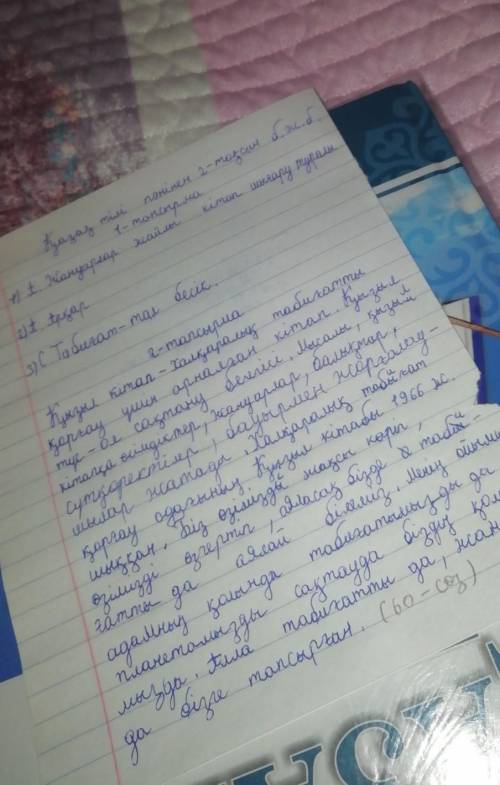 Қазақ тілі пәнінен 2-тоқсан б.ж.б.
1-тапсырма
1) А Жануарлар жайлы кітап шығару туралы
2) А Арқар
3) С Табиғат-тал бесік.
2-тапсырма
Қызыл кітап-халқаралық табиғатты
қорғау үшін арналған кітап. Қызыл
түс-ол сақтану белгісі. Мысалы, қызыл
кітапқа өсімдіктер, жануарлар, балықтар,
сүтқоректілер, бауырмен жорғалау-
шылар жатады. Халқаралық табиғат
қорғау одағының Қызыл кітабы 1966 ж.
шыққан. Біз өзімізді жақсы көріп,
өзімізді өзгертіп, аяласақ бізде таби
ғатты да аялай білеміз. Менің ойымша
адамның қолында табиғатымызды да
планетамызды сақтауда біздің қолы
мызда. Алла табиғатты да, жан
да бізге тапсырған. (60-сөз)